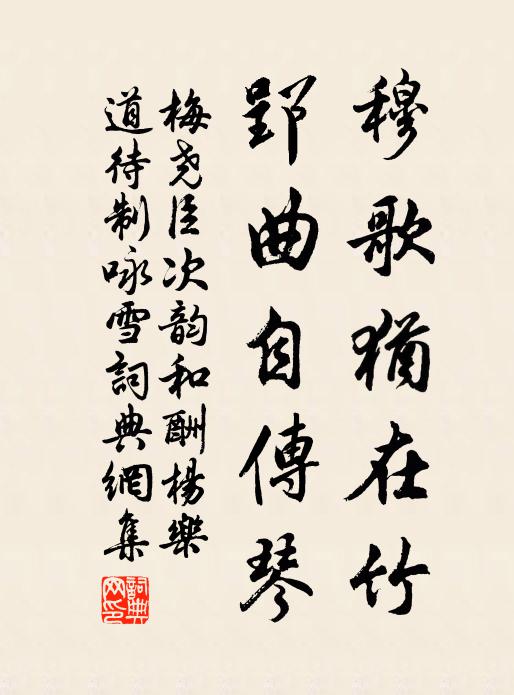 穆歌猶在竹
郢曲自傳琴
梅堯臣次韵和酬楊樂
道待制咏雪詞典網集
詞典網印